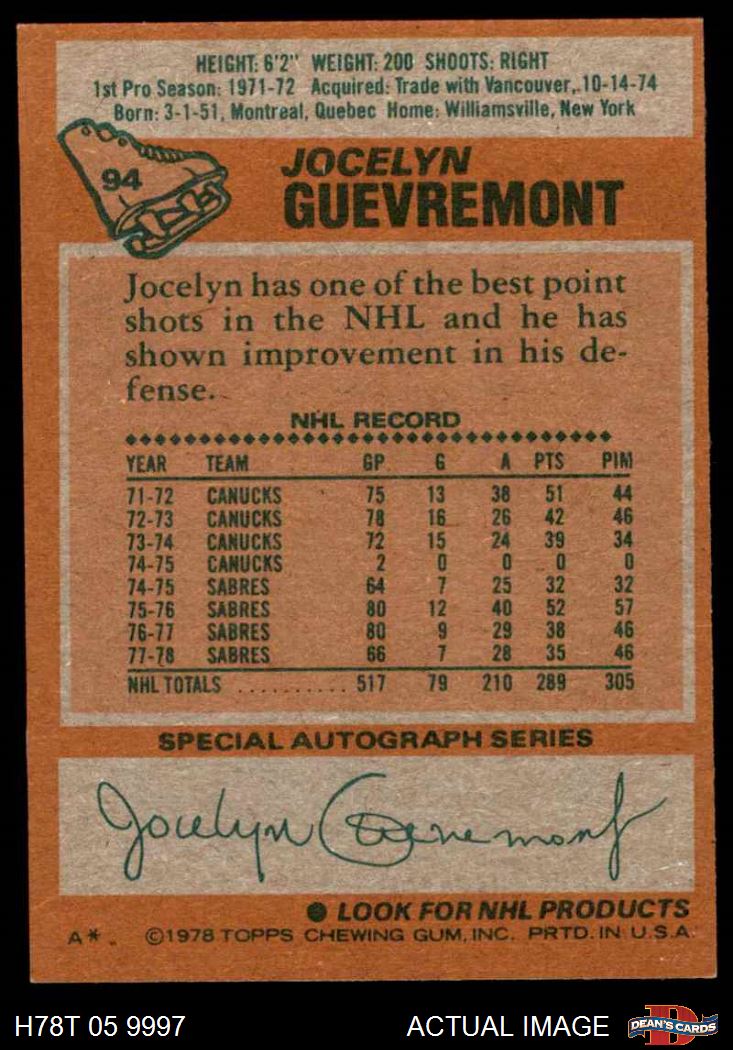 HEIGHT: 6'2" WEIGHT: 200 SHOOTS: RIGHT
1st Pro Season: 1971-72 Acquired: Trade with Vancouver, 10-14-74
Born: 3-1-51, Montreal, Quebec Home: Williamsville, New York
94
JOCELYN
GUEVREMONT
Jocelyn has one of the best point
shots in the NHL and he has
shown improvement in his de-
fense.
NHL RECORD
YEAR TEAM GP G A PTS PIM
71-72 CANUCKS 75 13 38 51 44
72-73 CANUCKS 78 16 26 42 46
73-74 CANUCKS 72 15 24 39 34
74-75 CANUCKS 2 0 0 0 0
74-75 SABRES 64 7 25 32 32
75-76 SABRES 80 12 40 52 57
76-77 SABRES 80 9 29 38 46
77-78 SABRES 66 7 28 35 46
NHL TOTALS .......... 517 79 210 289 305
SPECIAL AUTOGRAPH SERIES
Jocelyn Guevremont
● LOOK FOR NHL PRODUCTS
A*. ©1978 TOPPS CHEWING GUM, INC. PRTD. IN U.S.A.
H78T 05 9997 ACTUAL IMAGE DEAN'S CARDS